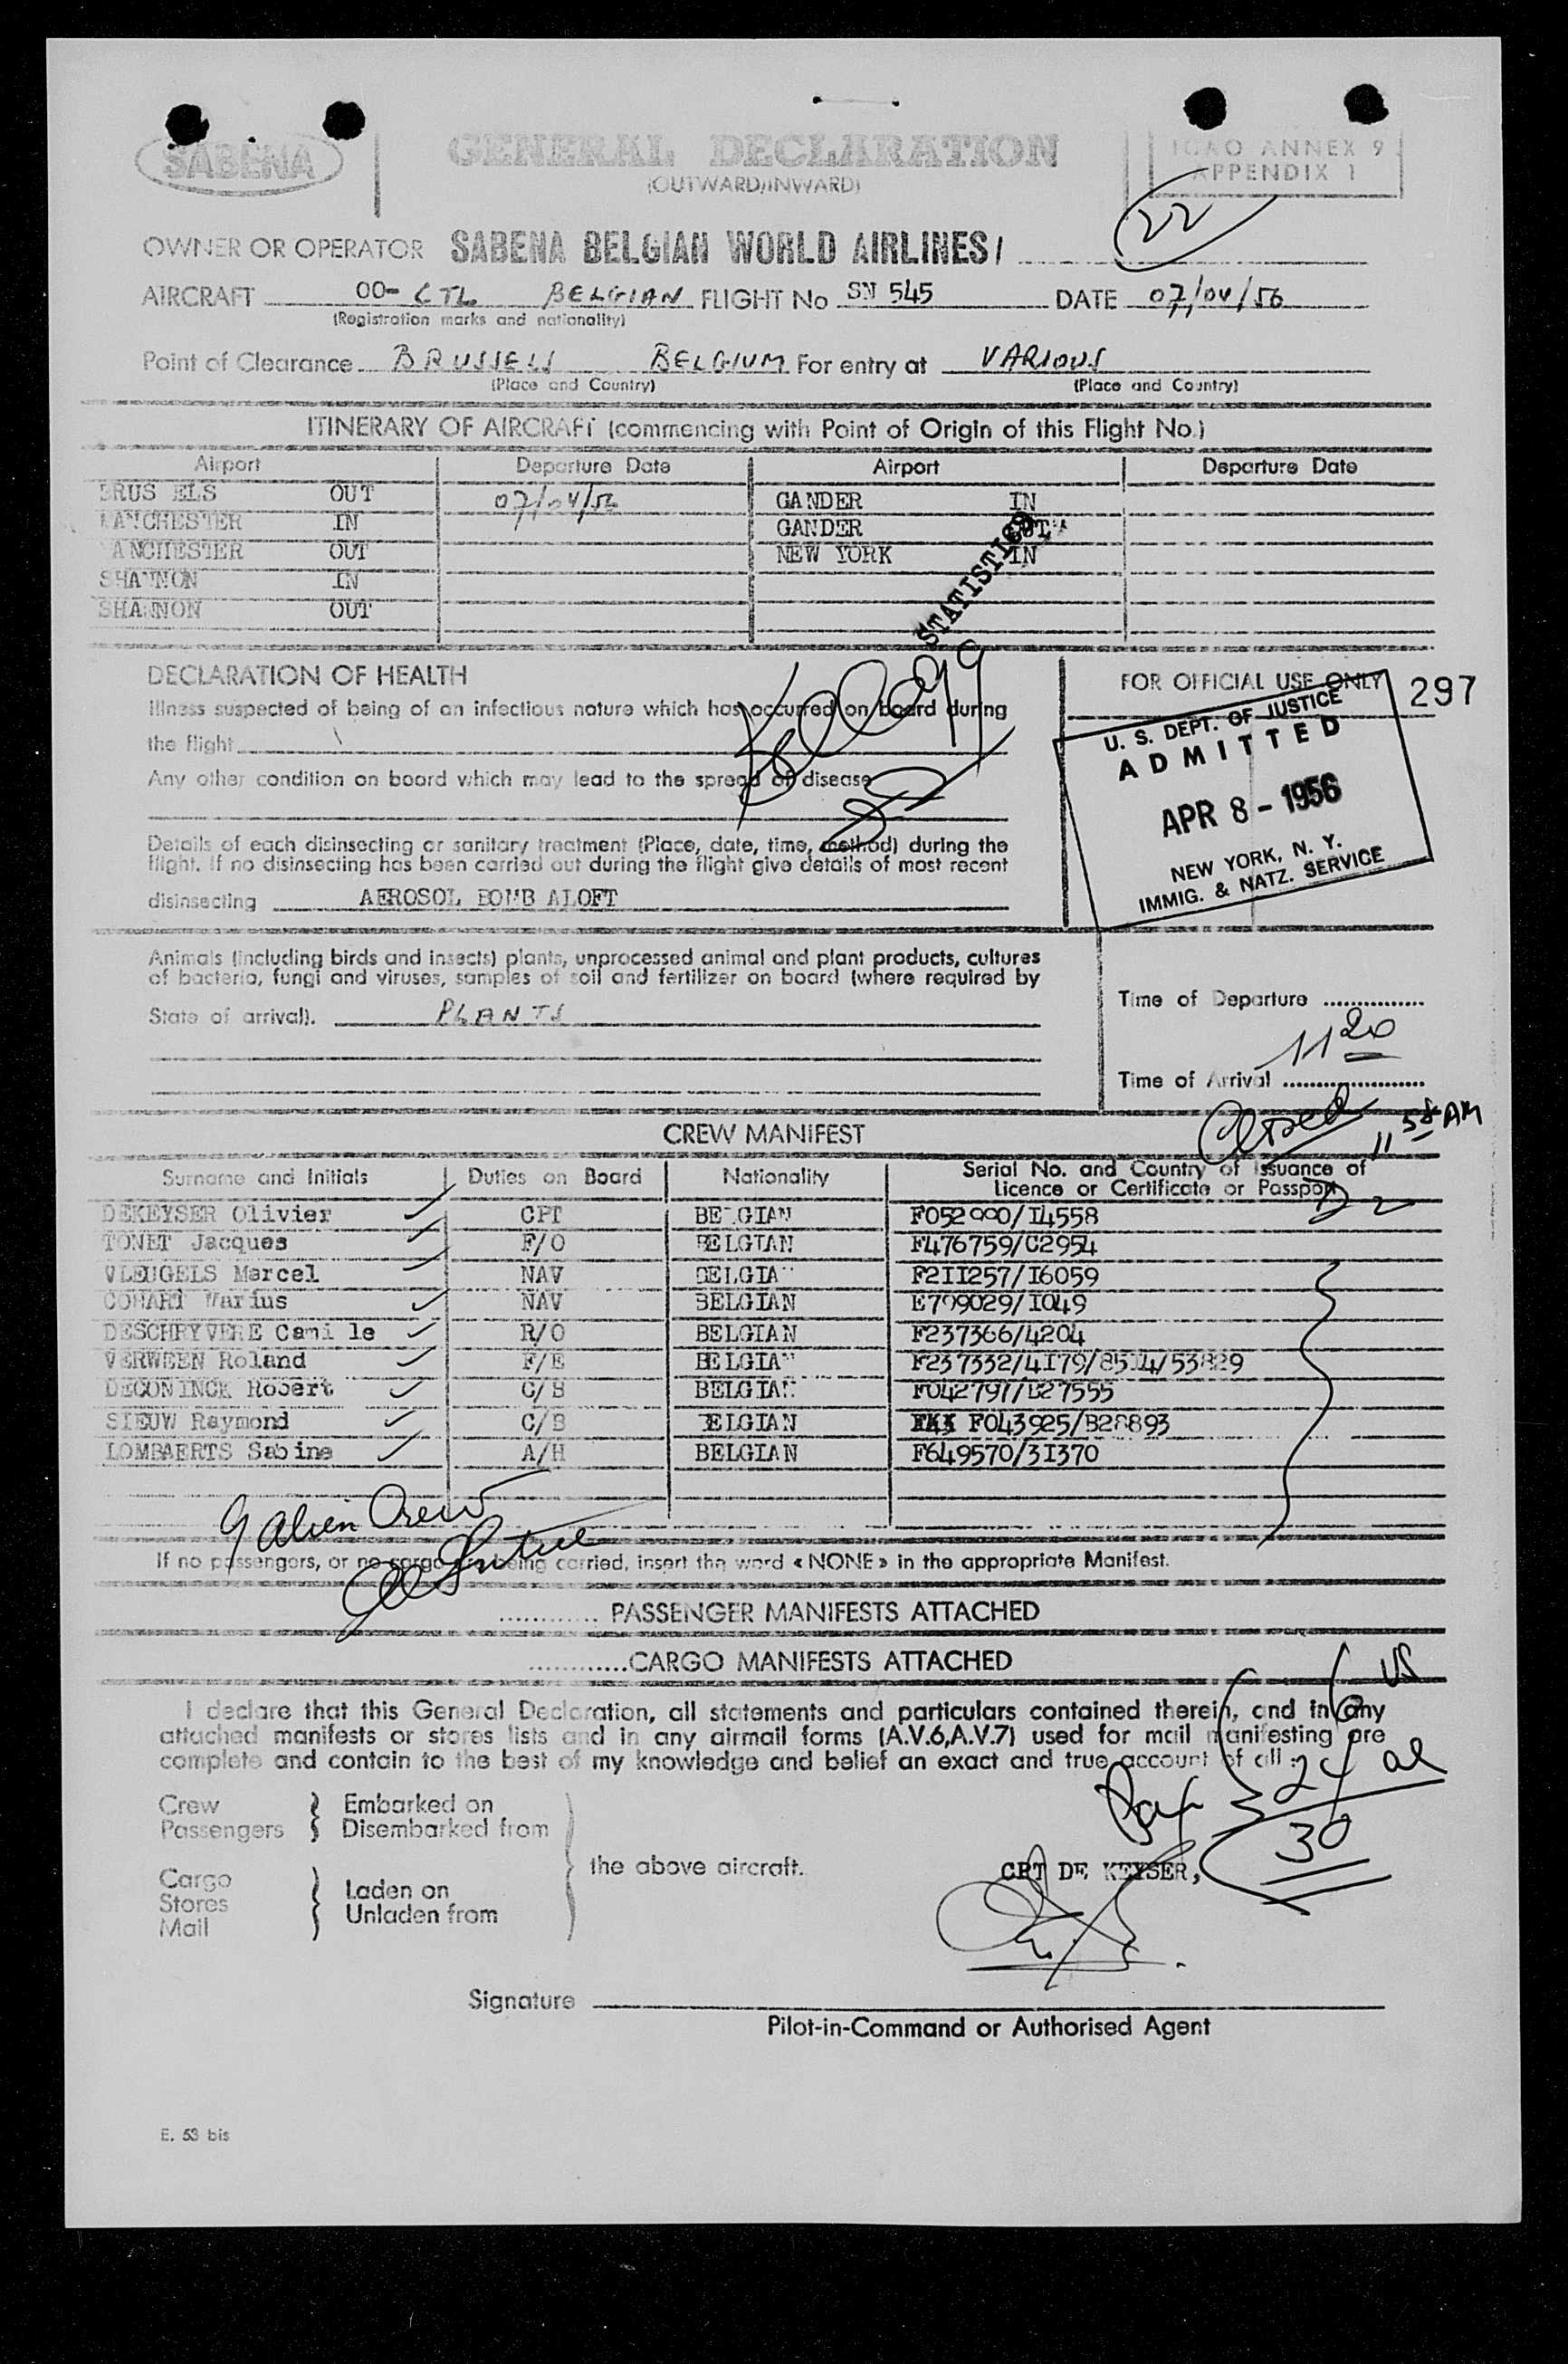 SABENA
GENERAL DECLARATION
(OUTWARD/INWARD)
ICAO ANNEX 9
APPENDIX 1
22
OWNER OR OPERATOR SABENA BELGIAN WORLD AIRLINES/
AIRCRAFT OO- CTL BELGIAN FLIGHT No SN 545 DATE 07/04/56
(Registration marks and nationality)
Point of Clearance BRUSSELS BELGIUM For entry at VARIOUS
(Place and Country) (Place and Country)
ITINERARY OF AIRCRAFT (commencing with Point of Origin of this Flight No.)
Airport Departure Date Airport Departure Date
BRUS ELS OUT 07/04/56 GANDER IN
MANCHESTER IN GANDER OUT
MANCHESTER OUT NEW YORK IN
SHANNON IN
SHANNON OUT
STATISTICS
DECLARATION OF HEALTH
Illness suspected of being of an infectious nature which has occurred on board during
the flight
Any other condition on board which may lead to the spread of disease
Details of each disinsecting or sanitary treatment (Place, date, time, method) during the
flight. If no disinsecting has been carried out during the flight give details of most recent
disinsecting AEROSOL BOMB ALOFT
FOR OFFICIAL USE ONLY
297
U. S. DEPT. OF JUSTICE
ADMITTED
APR 8 - 1956
NEW YORK, N. Y.
IMMIG. & NATZ. SERVICE
Animals (including birds and insects) plants, unprocessed animal and plant products, cultures
of bacteria, fungi and viruses, samples of soil and fertilizer on board (where required by
State of arrival). PLANTS
Time of Departure
1120
Time of Arrival
Closed 11 58 AM
CREW MANIFEST
Surname and Initials Duties on Board Nationality Serial No. and Country of Issuance of
Licence or Certificate or Passport
DEKEYSER Olivier CPT BELGIAN F052000/I4558
TONET Jacques F/O BELGIAN F476759/C2954
VLEUGELS Marcel NAV BELGIA F2II257/I6059
COHART Marius NAV BELGIAN E799029/I049
DESCHRYVERE Cami le R/O BELGIAN F237366/4204
VERWEEN Roland F/E BELGIA F237332/4I79/8514/53829
DECONINCK Robert C/S BELGIAN F042797/B27555
SIEUW Raymond C/S BELGIAN F043925/B28893
LOMBAERTS Sabine A/H BELGIAN F649570/3I370
9 Alien Crew
If no passengers, or no cargo are being carried, insert the word « NONE » in the appropriate Manifest.
............ PASSENGER MANIFESTS ATTACHED
............CARGO MANIFESTS ATTACHED
I declare that this General Declaration, all statements and particulars contained therein, and in any
attached manifests or stores lists and in any airmail forms (A.V.6,A.V.7) used for mail manifesting are
complete and contain to the best of my knowledge and belief an exact and true account of all :
6 US
Pax 24 al
30
Crew
Passengers
Embarked on
Disembarked from
Cargo
Stores
Mail
Laden on
Unladen from
the above aircraft.
CPT DE KEYSER,
Signature
Pilot-in-Command or Authorised Agent
E. 53 bis